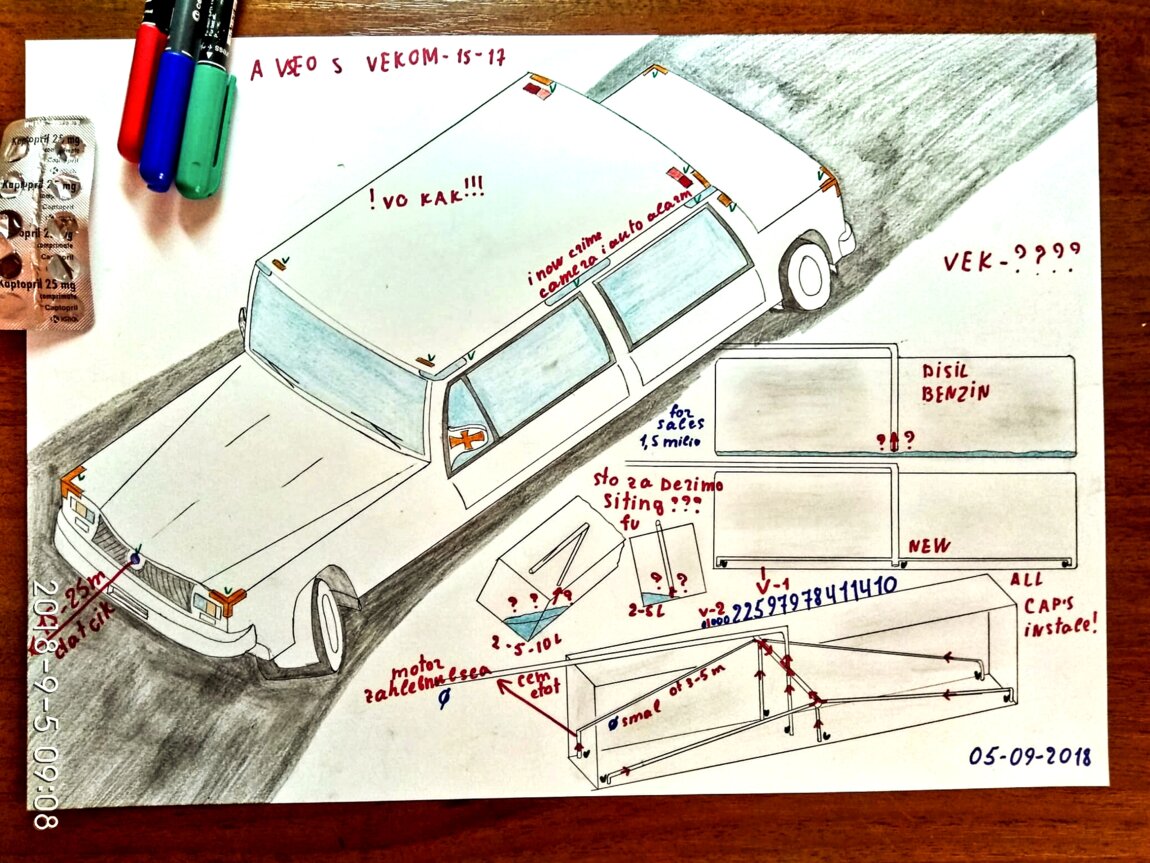 A VSEO S VEKOM-15-17
Kaptopril 25 mg
Captopril
Kaptopril 25 mg
comprimate
Captopril
comprimate
Kaptopril 25 mg
comprimate
Captopril
! VO KAK!!!
i now crime
camera i auto alarm
VEK-????
DISIL
BENZIN
for
sales
1,5 milio
? ?
sto za Dezimo
Siting ???
fu
NEW
? ? ?
? ?
2-5-10 L
2-5 L
V-1
V-2
225979784411410
ALL
CAP'S
instale!
-25m
datcik
motor
zahlebnulsea
Ø
cem
etot
Ø smal ot 3-5 m
05-09-2018
2018-9-5 09:08